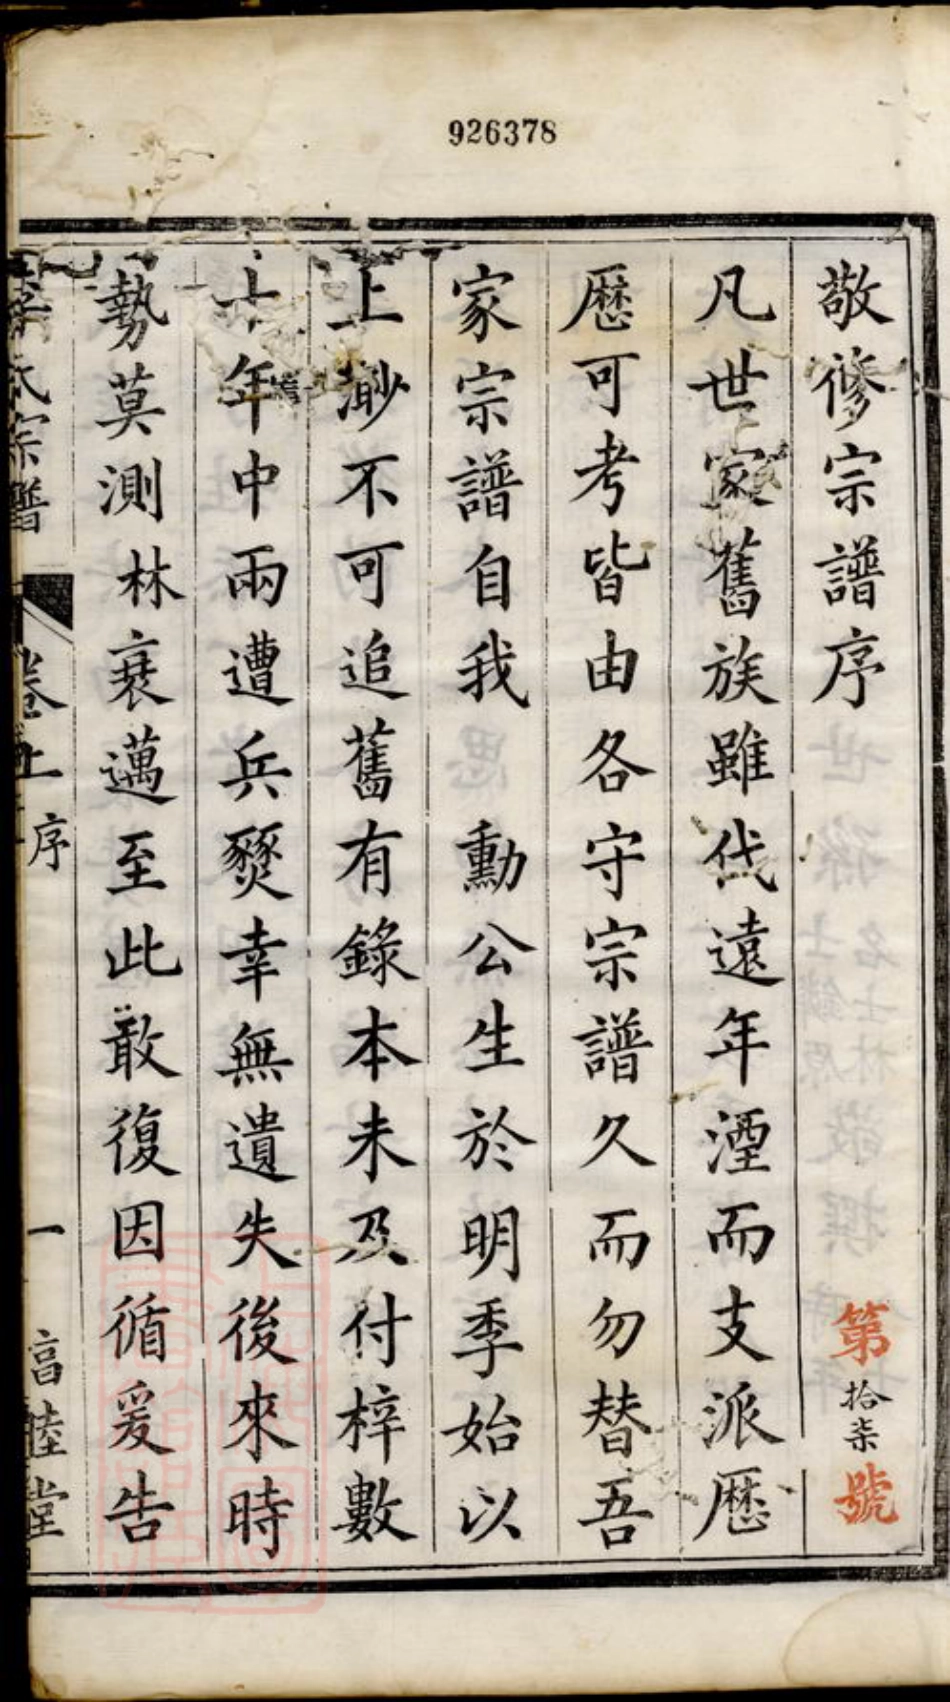 926378
敬修宗譜序
第拾柒號
凡世家舊族雖代遠年湮而支派歷
歷可考皆由各守宗譜久而勿替吾
家宗譜自我 勳公生於明季始以
上渺不可追舊有錄本未及付梓數
十年中兩遭兵燹幸無遺失後來時
勢莫測林衰邁至此敢復因循爰告
氏宗譜
卷上 序
一
睦堂